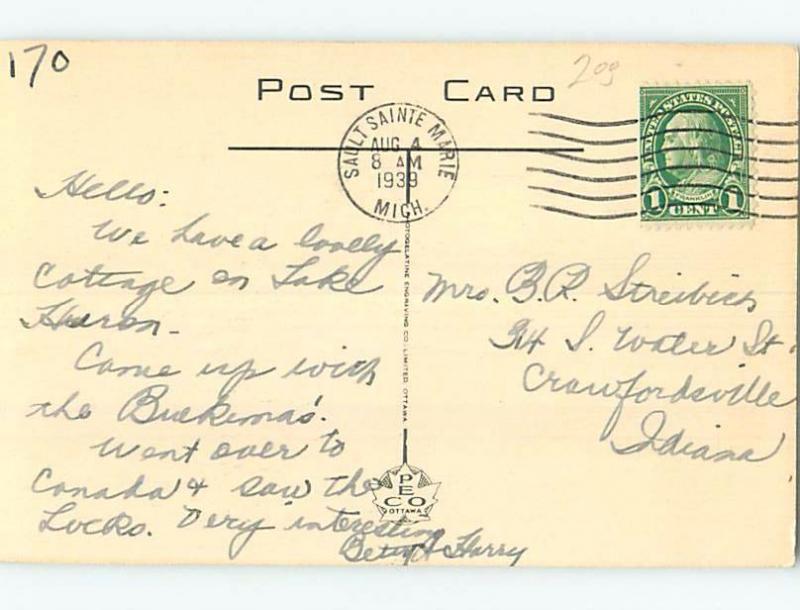 170
209
POST CARD
SAULT SAINTE MARIE
AUG 4
8 AM
1939
MICH.
UNITED STATES POSTAGE
FRANKLIN
1 CENT 1
Hello:
We have a lovely
cottage on Lake
Huron.
Came up with
the
Went over to
Canada & saw the
Locks. Very interesting
Betty & Harry
Mrs. B. R. Streibich
314 S. Water St.
Crawfordsville
Indiana
PHOTOGELATINE ENGRAVING CO. LIMITED. OTTAWA
PECO
OTTAWA